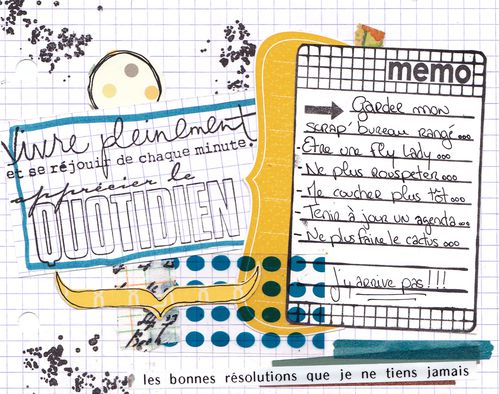 Vivre pleinement
et se réjouir de chaque minute.
apprécier le
QUOTIDIEN
memo
Garder mon
scrap bureau rangé...
- Etre une fly lady...
- Ne plus rouspeter...
- Me coucher plus tôt...
- Tenir à jour un agenda...
- Ne plus faire le cactus...
J'y arrive pas!!!
les bonnes résolutions que je ne tiens jamais